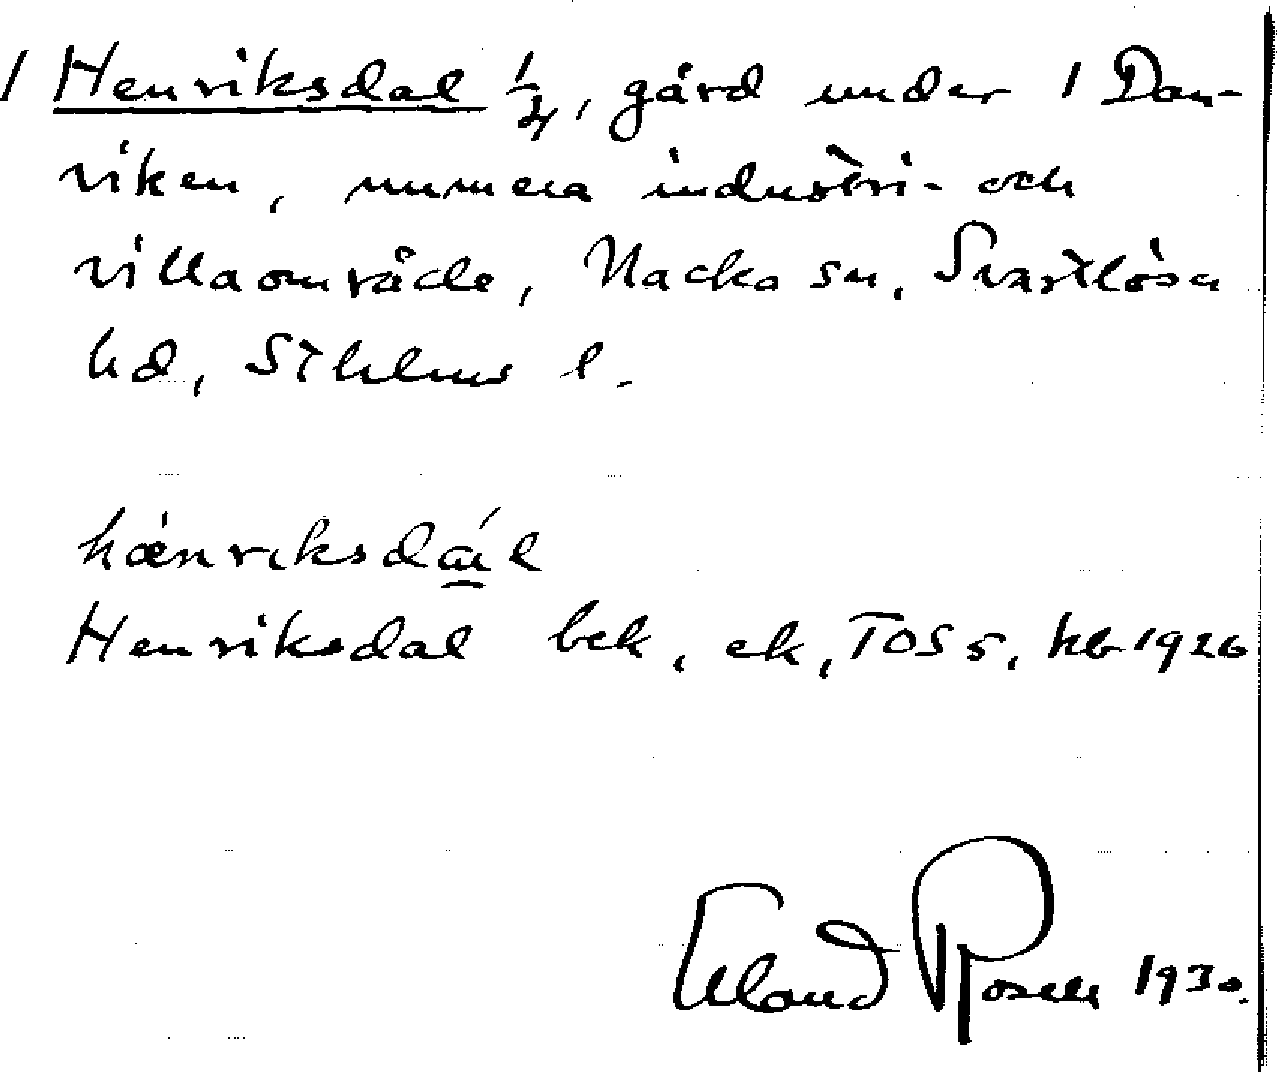 1 Henriksdal 1/4, gård under 1 Dan-
viken, numera industri- och
villaområde, Nacka sn, Svartlösa
hd, Sthlms l.
hænriksdál
Henriksdal bek, ek, TOS 5, hb 1926
Eland Rosell 1930.